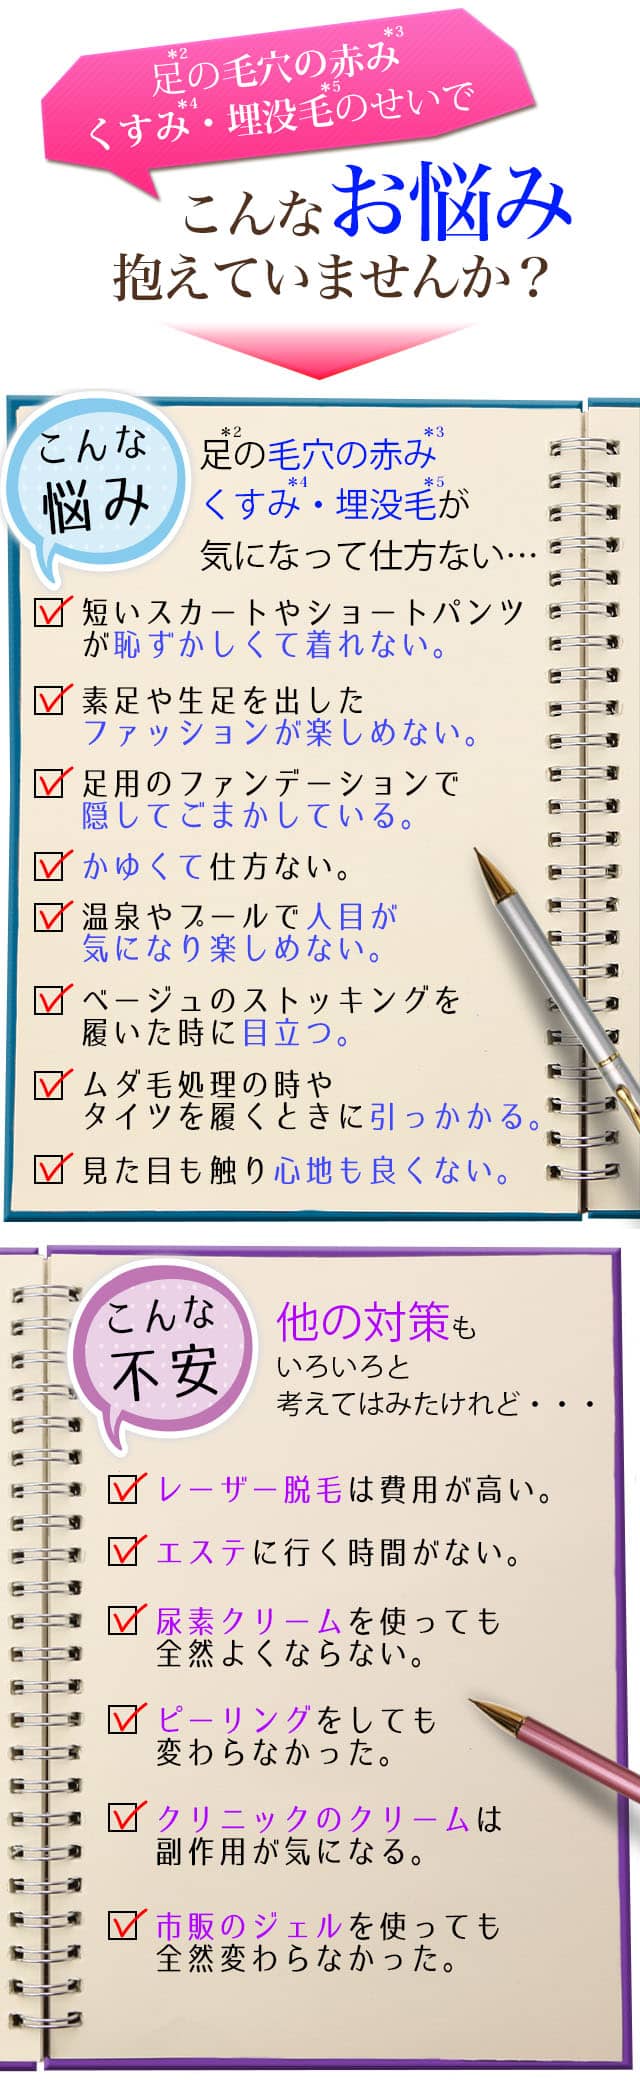 足*2の毛穴の赤み*3
くすみ*4・埋没毛*5のせいで
こんなお悩み
抱えていませんか？
こんな
悩み
足*2の毛穴の赤み*3
くすみ*4・埋没毛*5が
気になって仕方ない…
短いスカートやショートパンツ
が恥ずかしくて着れない。
素足や生足を出した
ファッションが楽しめない。
足用のファンデーションで
隠してごまかしている。
かゆくて仕方ない。
温泉やプールで人目が
気になり楽しめない。
ベージュのストッキングを
履いた時に目立つ。
ムダ毛処理の時や
タイツを履くときに引っかかる。
見た目も触り心地も良くない。
こんな
不安
他の対策も
いろいろと
考えてはみたけれど・・・
レーザー脱毛は費用が高い。
エステに行く時間がない。
尿素クリームを使っても
全然よくならない。
ピーリングをしても
変わらなかった。
クリニックのクリームは
副作用が気になる。
市販のジェルを使っても
全然変わらなかった。